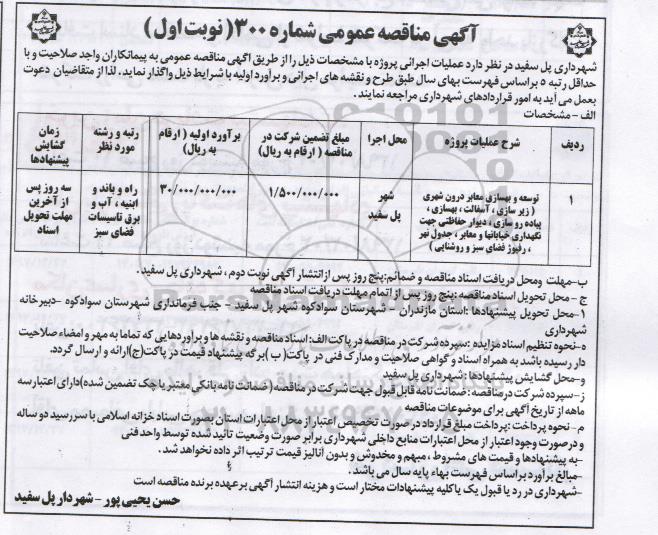 آگهی مناقصه عمومی شماره ۳۰۰( نوبت اول )
شهرداری پل سفید در نظر دارد عملیات اجرائی پروژه با مشخصات ذیل را از طریق آگهی مناقصه عمومی به پیمانکاران واجد صلاحیت و با
حداقل رتبه ۵ براساس فهرست بهای سال طبق طرح و نقشه های اجرائی و برآورد اولیه با شرایط ذیل واگذار نماید. لذا از متقاضیان دعوت
بعمل می آید به امور قراردادهای شهرداری مراجعه نمایند.
الف - مشخصات
ردیف
شرح عملیات پروژه
محل اجرا
مبلغ تضمین شرکت در
مناقصه ( ارقام به ریال)
برآورد اولیه ( ارقام
به ریال)
رتبه و رشته
مورد نظر
زمان
گشایش
پیشنهادها
۱
توسعه و بهسازی معابر درون شهری
( زیر سازی ، آسفالت ، بهسازی ،
پیاده رو سازی ، دیوار حفاظتی جهت
نگهداری خیابانها و معابر ، جدول نهر
، رفیوژ فضای سبز و روشنایی )
شهر
پل سفید
۱/۵۰۰/۰۰۰/۰۰۰
۳۰/۰۰۰/۰۰۰/۰۰۰
راه و باند و
ابنیه ، آب و
برق تاسیسات
فضای سبز
سه روز پس
از آخرین
مهلت تحویل
اسناد
ب-مهلت ومحل دریافت اسناد مناقصه و ضمائم:پنج روز پس ازانتشار آگهی نوبت دوم ، شهرداری پل سفید.
ج - محل تحویل اسناد مناقصه :پنج روز پس از اتمام مهلت دریافت اسناد مناقصه
۱-محل تحویل پیشنهادها :استان مازندران - شهرستان سوادکوه شهر پل سفید - جنب فرمانداری شهرستان سوادکوه -دبیرخانه
شهرداری
ه-نحوه تنظیم اسناد مزایده :سپرده شرکت در مناقصه در پاکت الف:اسناد مناقصه و نقشه ها و برآوردهایی که تماما به مهر و امضاء صلاحیت
دار رسیده باشد به همراه اسناد و گواهی صلاحیت و مدارک فنی در پاکت( ب )برگه پیشنهاد قیمت در پاکت(ج)ارائه و ارسال گردد.
و-محل گشایش پیشنهادها :شهرداری پل سفید
ز-سپرده شرکت درمناقصه: ضمانت نامه قابل قبول جهت شرکت در مناقصه(ضمانت نامه بانکی معتبر یا چک تضمین شده)دارای اعتبار سه
ماهه از تاریخ آگهی برای موضوعات مناقصه
م- نحوه پرداخت: پرداخت مبلغ قرارداد در صورت تخصیص اعتبار از محل اعتبارات استان بصورت اسناد خزانه اسلامی با سررسید دو ساله
و درصورت وجود اعتبار از محل اعتبارات منابع داخلی شهرداری برابر صورت وضعیت تائید شده توسط واحد فنی
-به پیشنهادها و قیمت های مشروط ، مبهم و مخدوش و بدون آنالیز قیمت ترتیب اثر داده نخواهد شد .
-مبالغ برآورد براساس فهرست بهاء پایه سال می باشد .
-شهرداری در رد یا قبول یک یا کلیه پیشنهادات مختار است و هزینه انتشار آگهی برعهده برنده مناقصه است
حسن یحیی پور - شهردار پل سفید